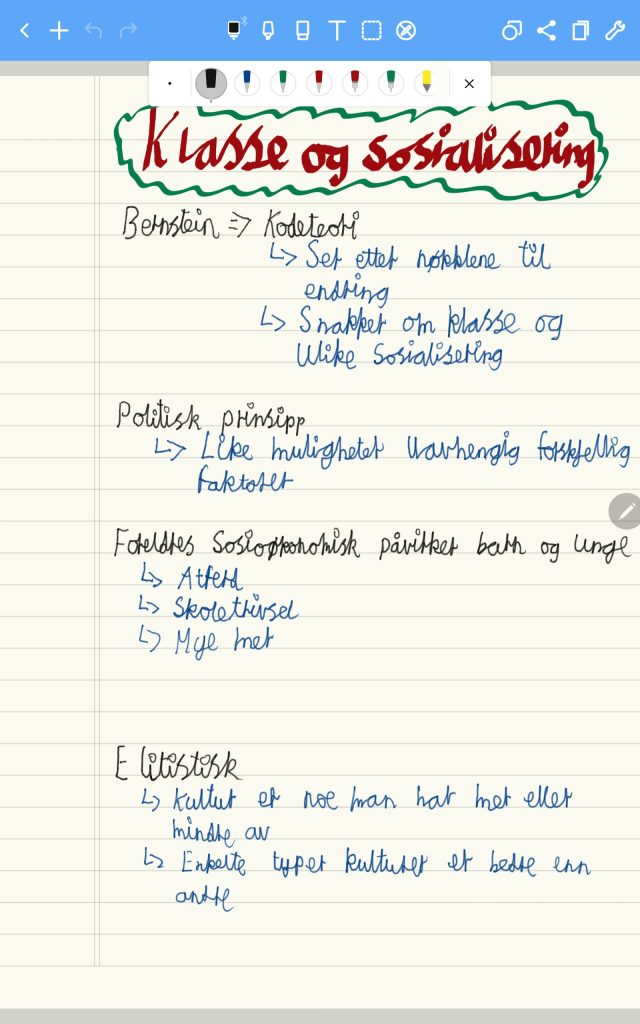 Klasse og sosialisering
Bernstein => Kodeteori
↳ Ser etter nøkklene til
endring
↳ Snakker om klasse og
Ulike sosialisering
Politisk prinsipp
↳ Like muligheter Uavhengig forskjellig
faktorer
Foreldres Sosioøkonomisk påvirker barn og unge
↳ Atferd
↳ Skoletrivsel
↳ Mye mer
Elitistisk
↳ Kultur er noe man har mer eller
mindre av
↳ Enkelte typer kulturer er bedre enn
andre